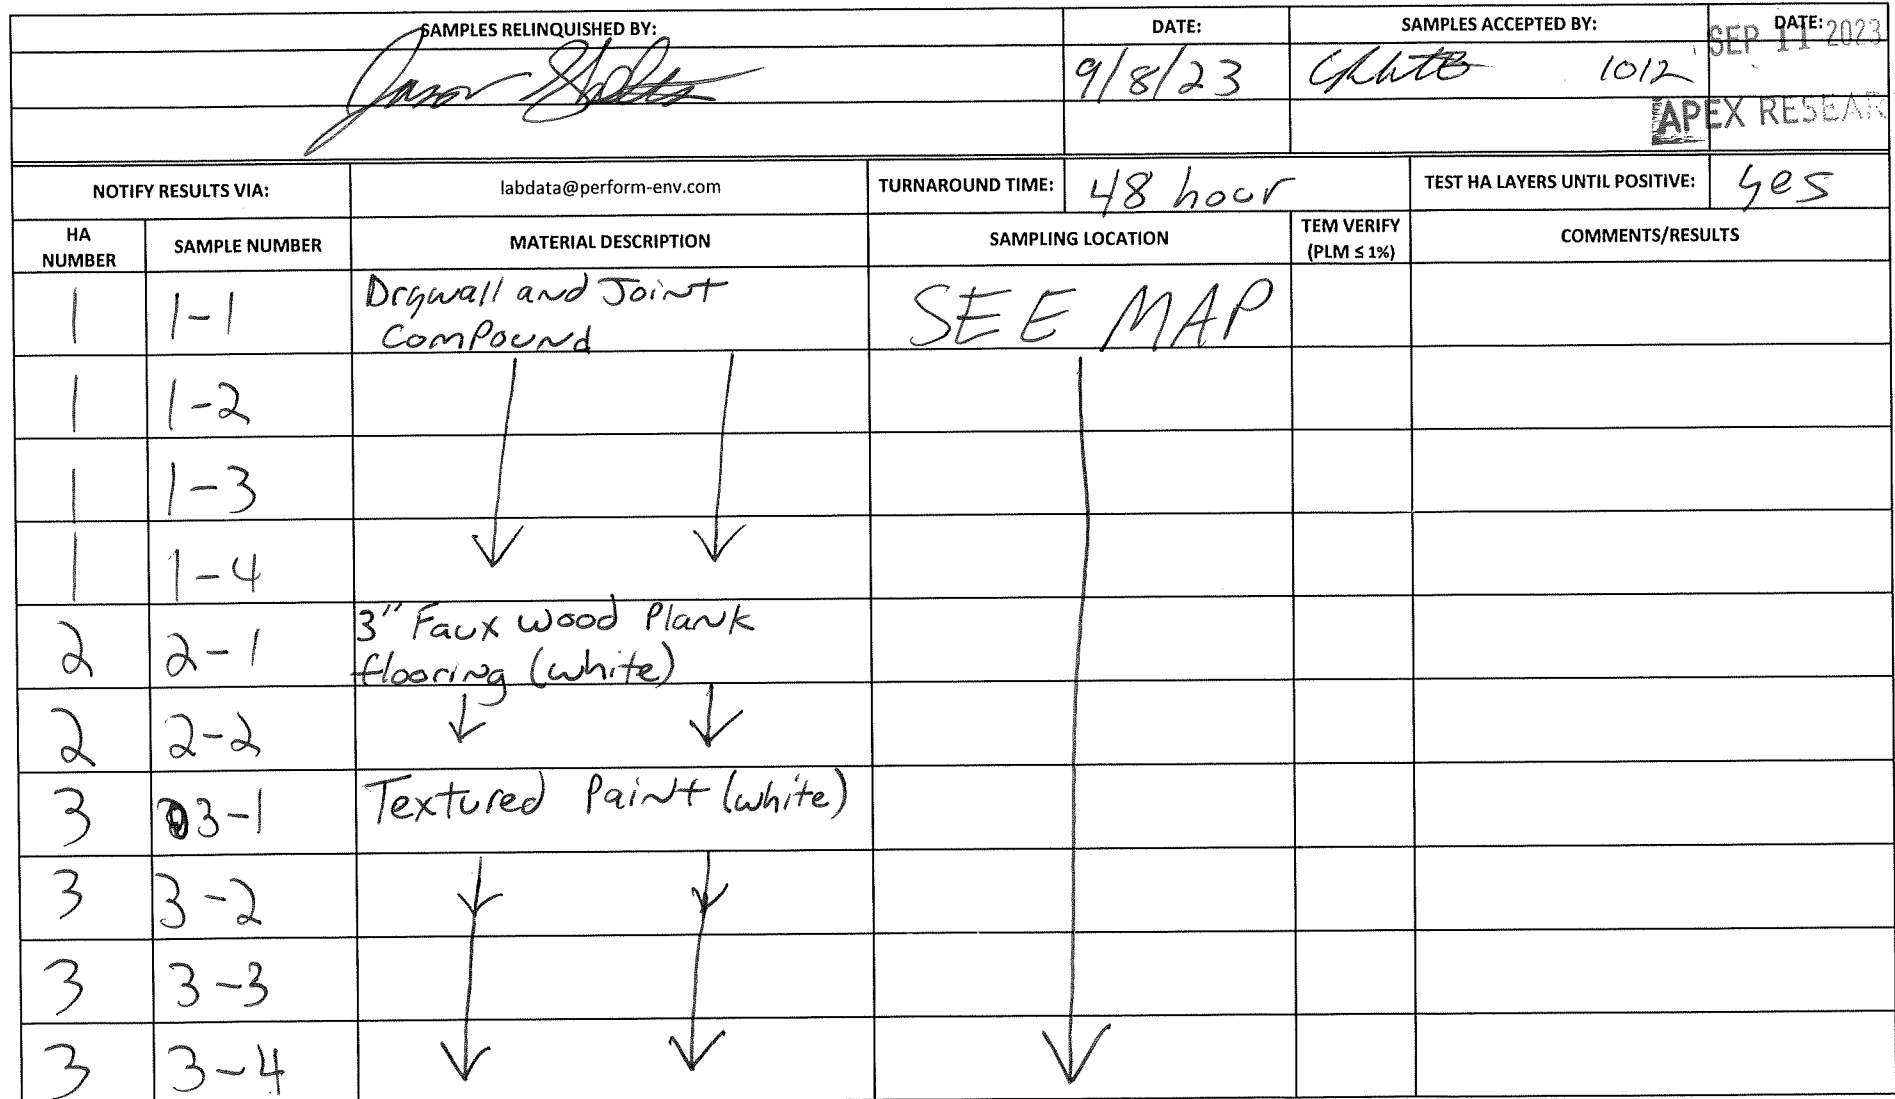 SAMPLES RELINQUISHED BY: DATE: SAMPLES ACCEPTED BY: DATE:
SEP 11 2023
Jason 9/8/23 1012
APEX RESEAR
NOTIFY RESULTS VIA: labdata@perform-env.com TURNAROUND TIME: 48 hour TEST HA LAYERS UNTIL POSITIVE: yes
HA NUMBER SAMPLE NUMBER MATERIAL DESCRIPTION SAMPLING LOCATION TEM VERIFY (PLM ≤ 1%) COMMENTS/RESULTS
1 1-1 Drywall and Joint Compound SEE MAP
1 1-2
1 1-3
1 1-4
2 2-1 3" Faux wood Plank flooring (white)
2 2-2
3 3-1 Textured Paint (white)
3 3-2
3 3-3
3 3-4